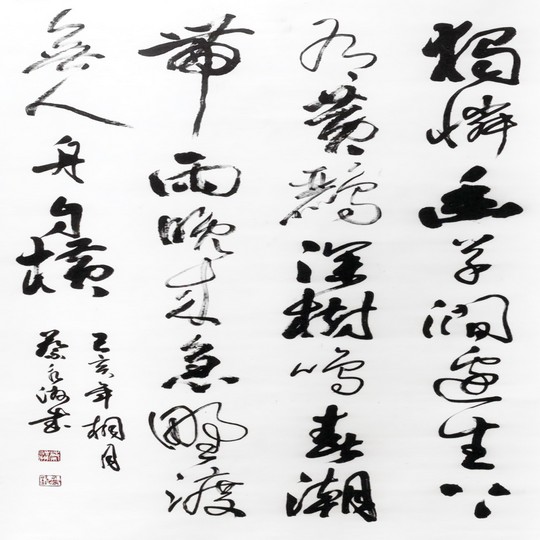 獨憐幽草澗邊生上
有黃鸝深樹鳴春潮
帶雨晚來急野渡
無人舟自橫
己亥年桐月
蔡